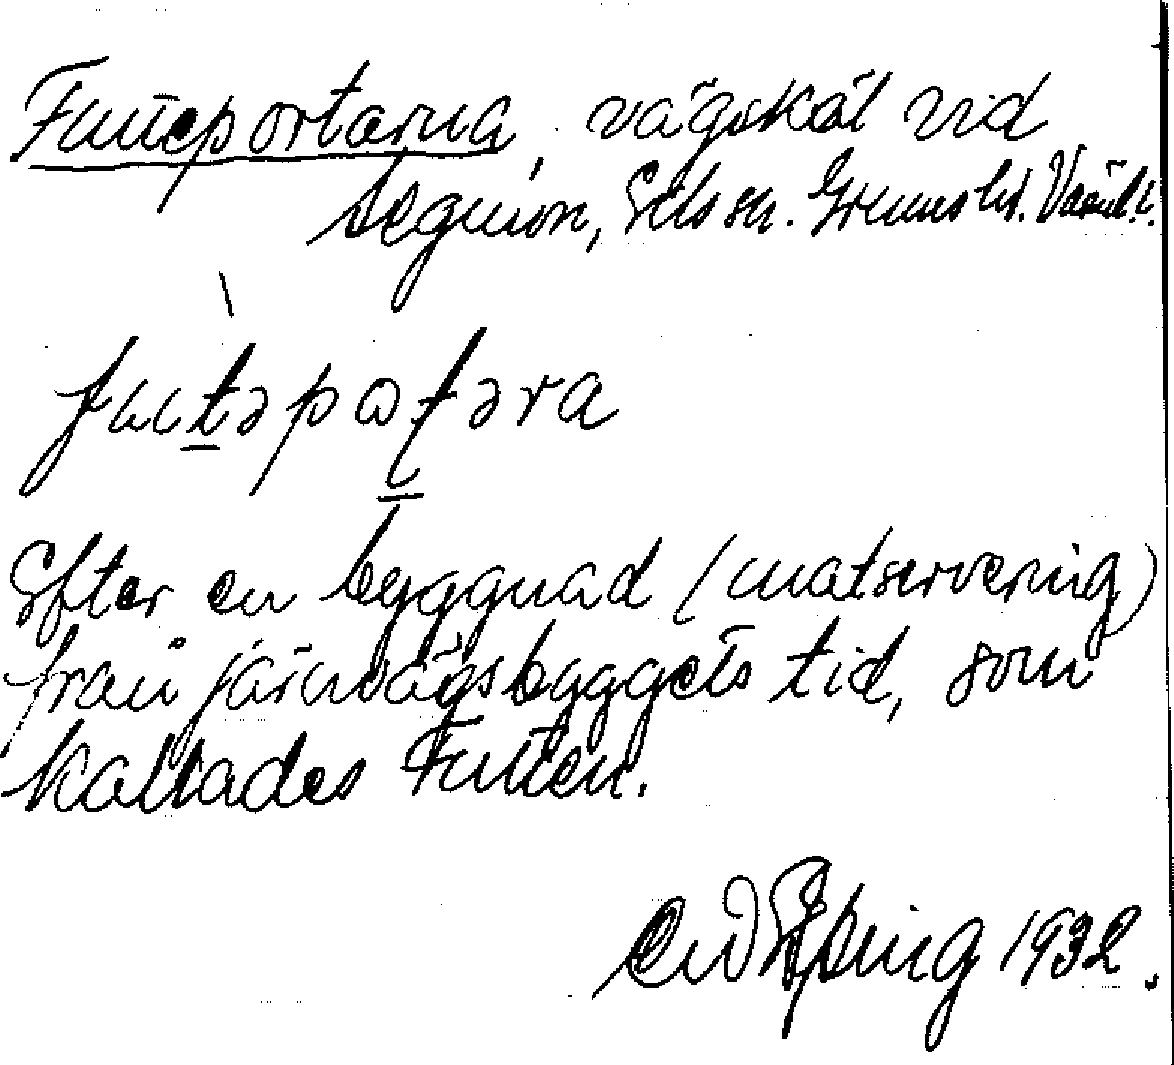 Futteportarna, vägskäl vid
Segmon, Eds sn. Grums hd. Värml.
Efter en byggnad (matservering)
från järnvägsbyggets tid, som
kallades Futten.
1932.